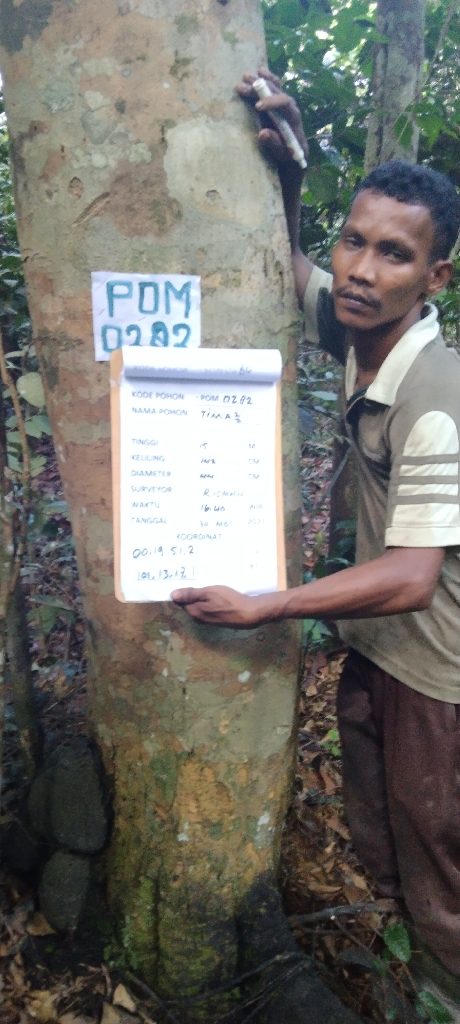 POM
0282
KODE POHON : POM 0282
NAMA POHON TIMAZ²
TINGGI 15 M
KELILING CM
DIAMETER CM
SURVEYOR
WAKTU 16:40 WIB
TANGGAL 30
KOORDINAT
00.19.51.2
101.13.17.1